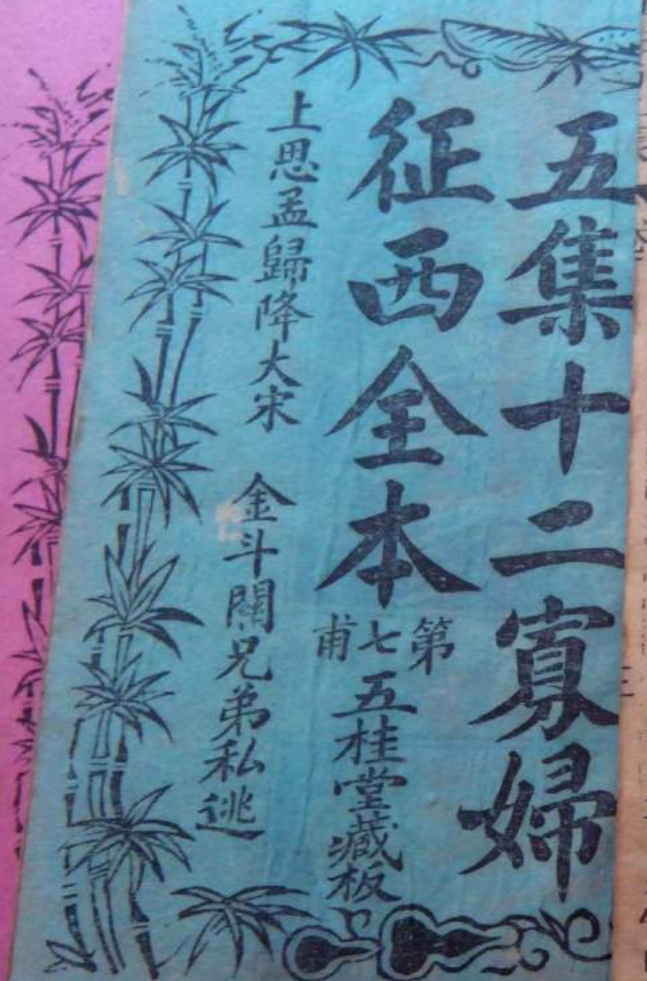 五集十二寡婦
征西全本
第七甫
五桂堂藏板
上思孟歸降大宋
金斗關兄弟私逃